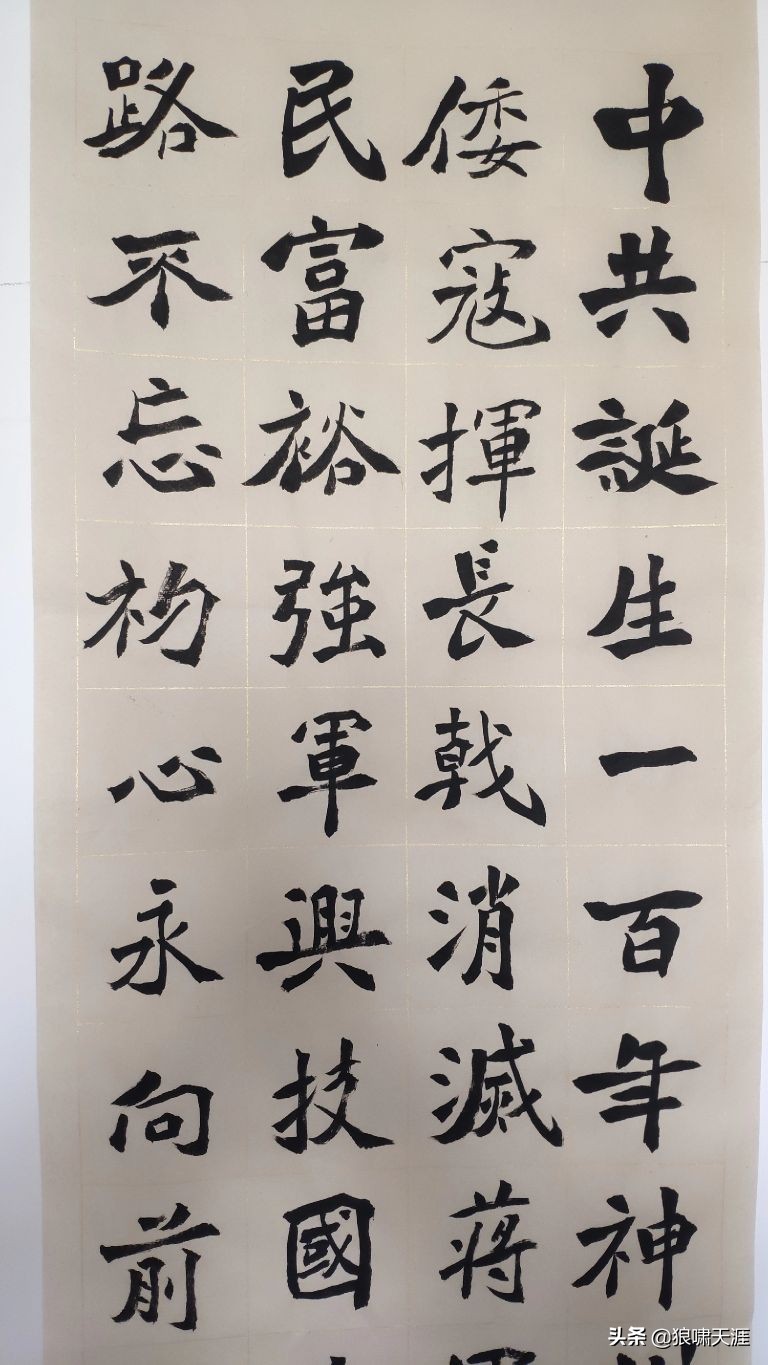 中共誕生一百年神
倭寇揮長戟消滅蔣
民富裕強軍興技國
路不忘初心永向前
头条 @狼啸天涯